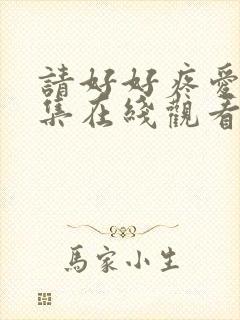 請好好疼愛
集在綫觀看
馬家小生